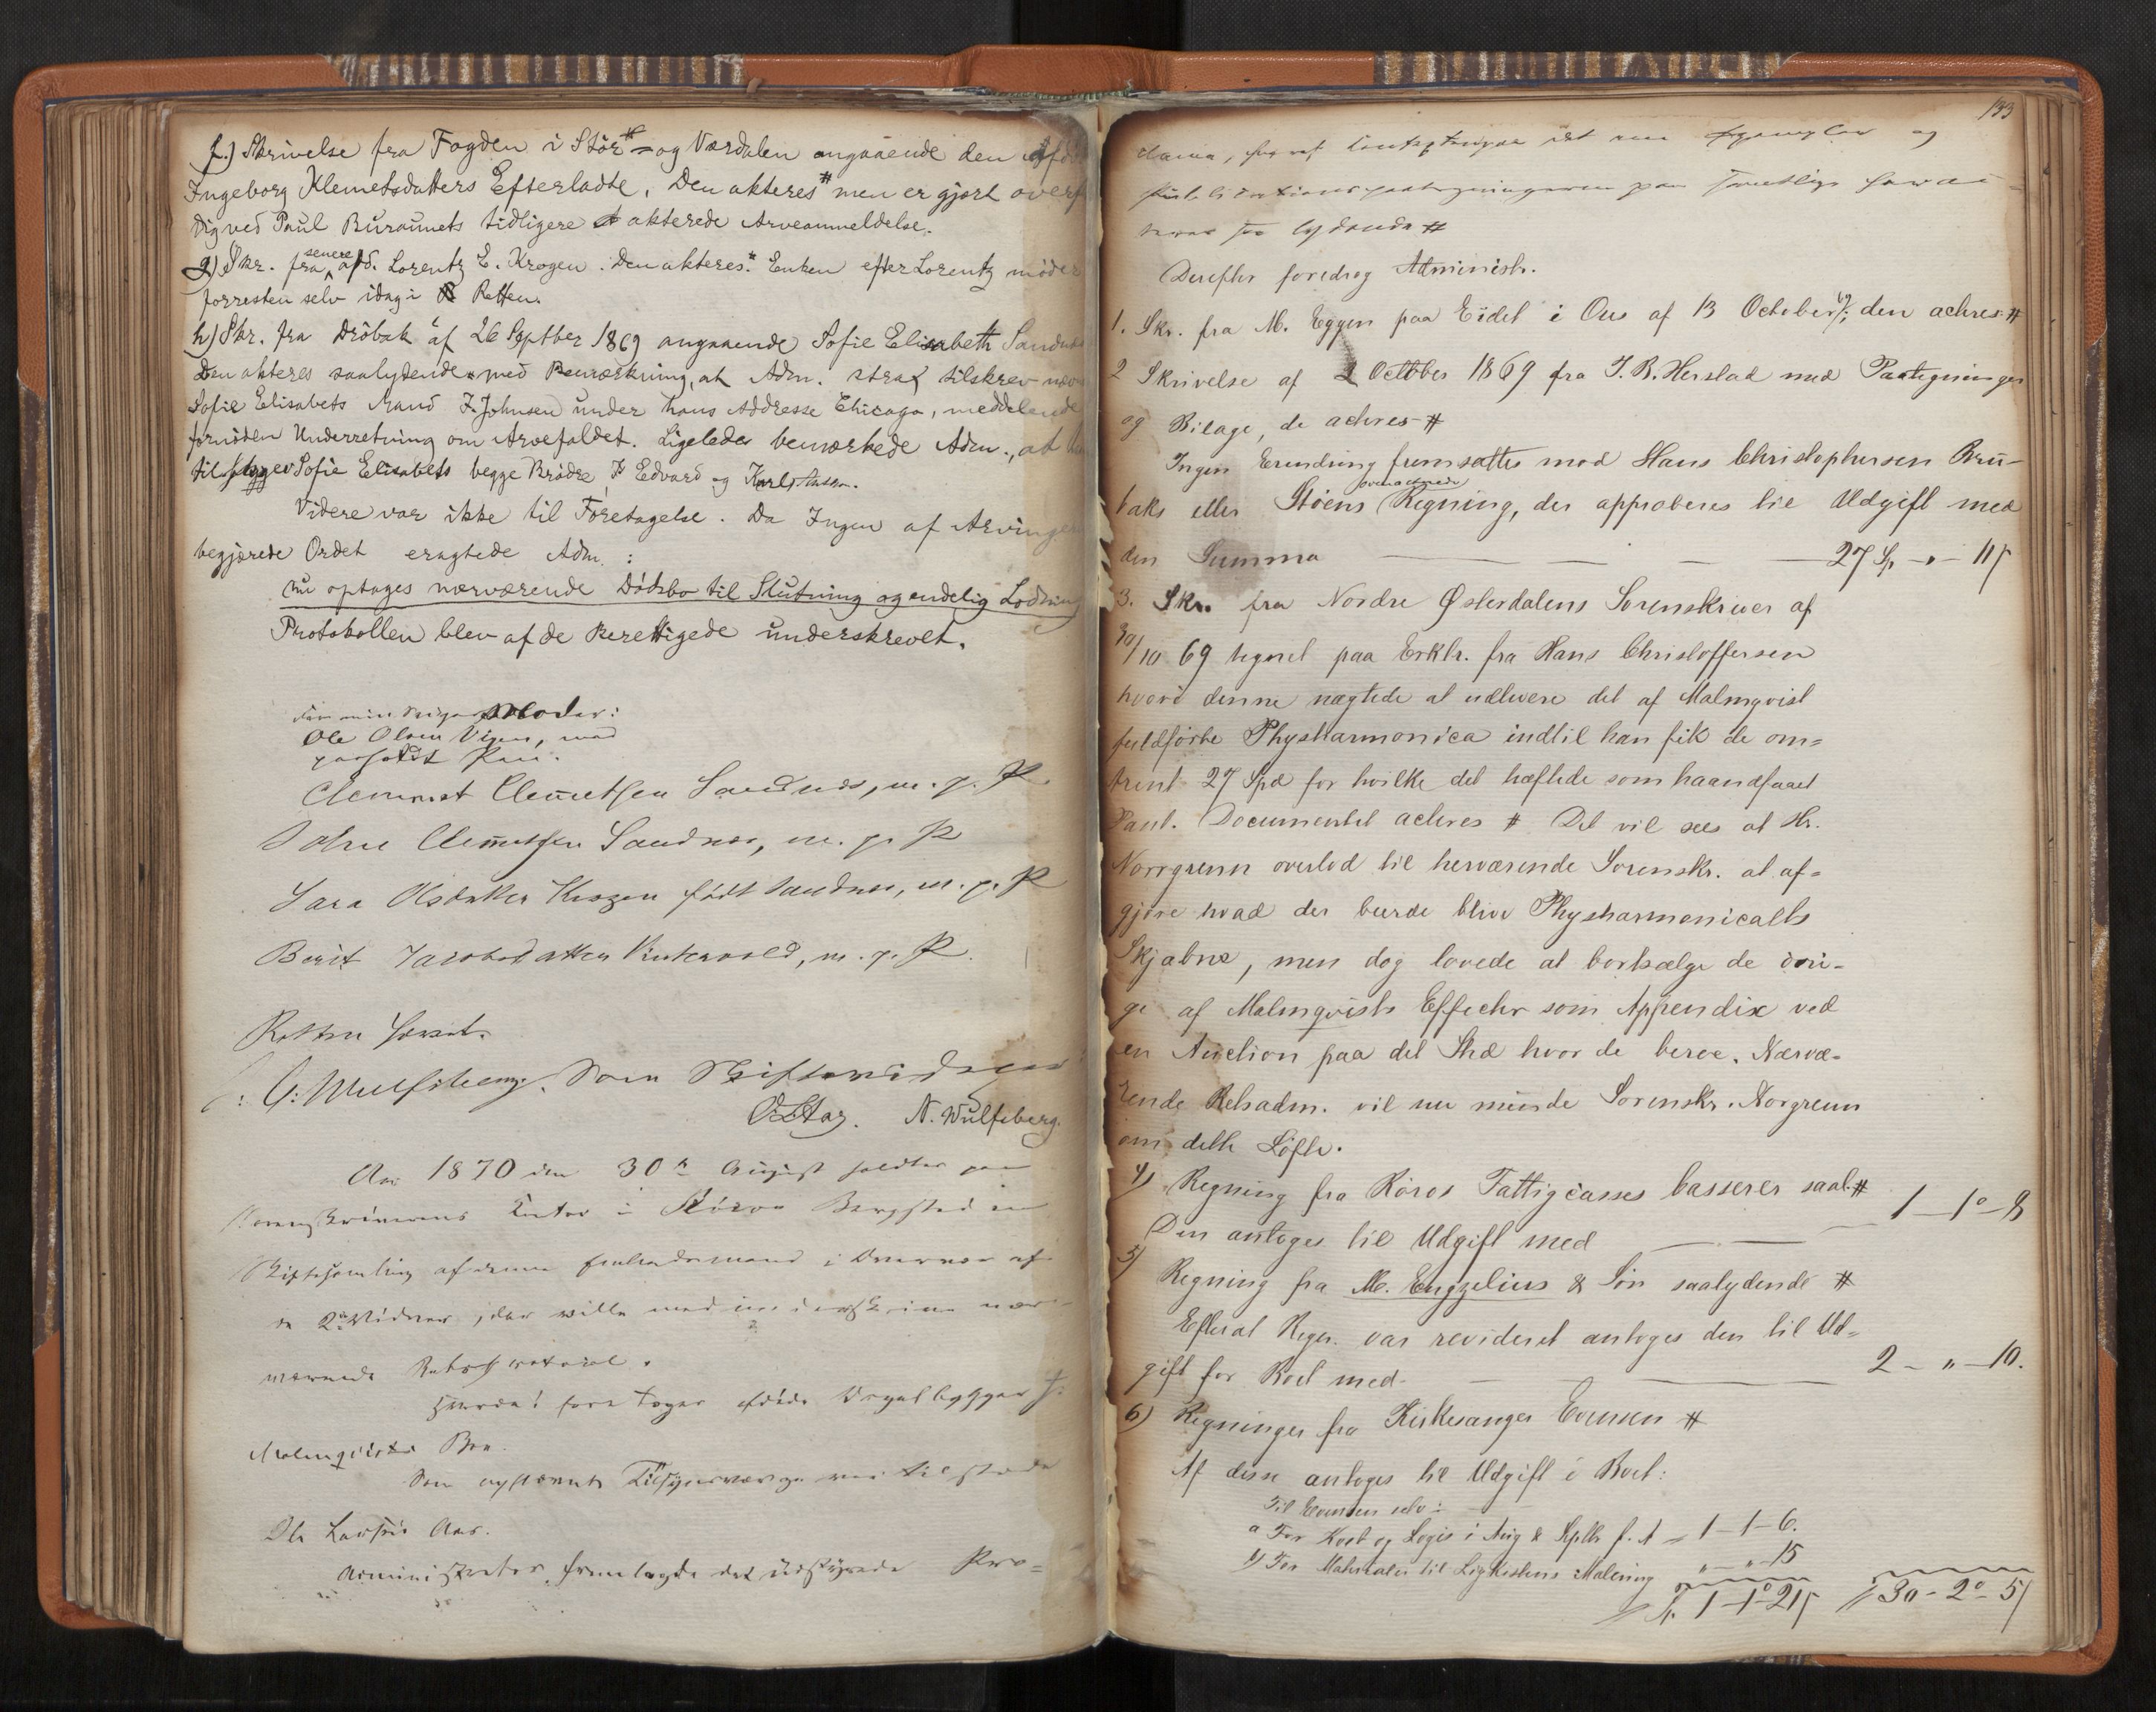 f.) Skrivelse fra Fogden i Stør- # og Værdalen angaaende den afdø
Ingeborg Klemetsdatters Efterladte. Den akteres # men er gjort overfl
dig ved Paul Buraunets tidligere akterede Arveanmeldelse.
g) Skr. fra senere afd. Lorentz E. Krogen. Den akteres.# Enken efter Lorentz møder
forresten selv idag i Retten.
h) Skr. fra Drøbak af 26 Septber 1869 angaaende Sofie Elisabeth Sandnes
Den akteres saalydende # med Bemærkning, at Adm. strax tilskrev
Sofie Elisabets Mand J. Johnsen under hans Addresse Chicago, meddelende
fornøden Underretning om Arvefaldet. Ligeledes bemærkede Adm., at
Sofie Elisabets begge Brødre, Edvard og Karl
Videre var ikke til Foretagelse. Da Ingen af Arvingerne
begjærede Ordet eragtede Adm.:
nu optages nærværende Dødsbo til Slutning og endelig Lodning
Protokollen blev af de Berettigede underskrevet.
Moder:
Ole Olsen Vigen, med
paaholdt Pen.
Clemmet Clemetsen Sandnes, m. p. P.
John Clemetsen Sandnes, m. p. P
Sara Olsdatter Krogen født Sandnes, m. p. P
Berit Jacobsdatter, m. p. P.
Retten hævet.
Wulfsberg. Som Skiftevidner
N. Wulfsberg.
Aar 1870 den 30te August holdtes paa
Sorenskriverens Kontor i Røros Bergstad en
Skiftesamling af denne Embedsmand i Overvær af
de 2de Vidner, der ville medunderskrive nær-
værende Retsprotocol.
Hvorda! foretoges afdøde Orgelbygger J.
Malmqvists Bo.
Som opnævnt Tilsynsværge var tilstede
Ole Larsen Aas.
Administrator fremlagde det udstyrede Pro-
133
clama, og
paa samtlige
saa lydende #
Derefter foredrog Administr.
1. Skr. fra M. Eggen paa Eidet i Ous af 13 October 69; den acteres #
2 Skrivelse af 2 October 1869 fra J. B. Herstad med Paategninger
og Bilage, de acteres #
Ingen Erindring fremsattes mod Hans Christophersen Bru-
baks eller Støens ovenacterede Regning, der approberes til Udgift med
den Summa — — — — 27 Sp - „ - 11 ß
3. Skr. fra Nordre Østerdalens Sorenskriver af
30/10 69 tegnet paa Erklr. fra Hans Christoffersen
hvori denne nægtede at udlevere det af Malmqvist
fuldførte Physharmonica indtil han fik de om-
trent 27 Spd for hvilke det hæftede som haandfaaet
Pant. Documentet acteres # Det vil sees at Hr.
Norrgrenn overlod til herværende Sorenskr. at af-
gjøre hvad der burde blive Physharmonicalts
Skjæbne, men dog lovede at bortsælge de øvri-
ge af Malmqvists Effecter som Appendix ved
en Auction paa det Sted hvor de beroe. Nærvæ-
rende Retsadm. vil nu minde Sorenskr. Norgrenn
om dette Løfte.
4) Regning fra Røros Fattigcasses Casserer saal. #
Den antoges til Udgift med — — 1 - 1° - 8
5) Regning fra M. Engzelius & Søn saalydende #
Efterat Regn. var revideret antoges den til Ud-
gift for Boet med — — 2 - „ - 10.
6) Regninger fra Kirkesanger Evensen #
Af disse antoges til Udgift i Boet:
Til Evensen selv:
a For Kost og Logis i Aug & Septbr f. A - 1 - 1 - 6.
b) For Materialer til Ligkistens Maling „ - „ - 15
1 - 1° - 21 ß 30 - 2° - 5 ß